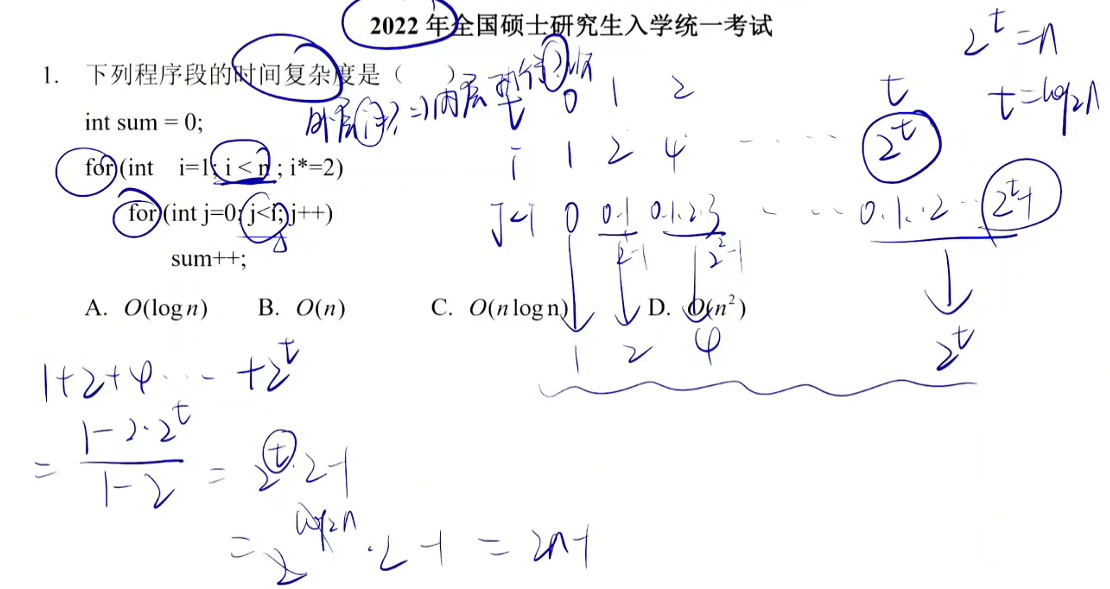 2022 年全国硕士研究生入学统一考试
1. 下列程序段的时间复杂度是（ ）。
int sum = 0;
for(int i=1; i < n ; i*=2)
for(int j=0; j<i; j++)
sum++;
A. O(log n) B. O(n) C. O(n log n) D. O(n²)
2^t = n
t = log₂n
t 0 1 2 t
i 1 2 4 ... ... 2^t
j<i 0 0.1 0.1.2.3 ... ... 0.1.2 ... 2^t-1
2-1 2²-1
1 2 4 2^t
1+2+4 ... +2^t
= (1-2·2^t)/(1-2) = 2^t·2-1
= 2^log₂n ·2-1 = 2n-1